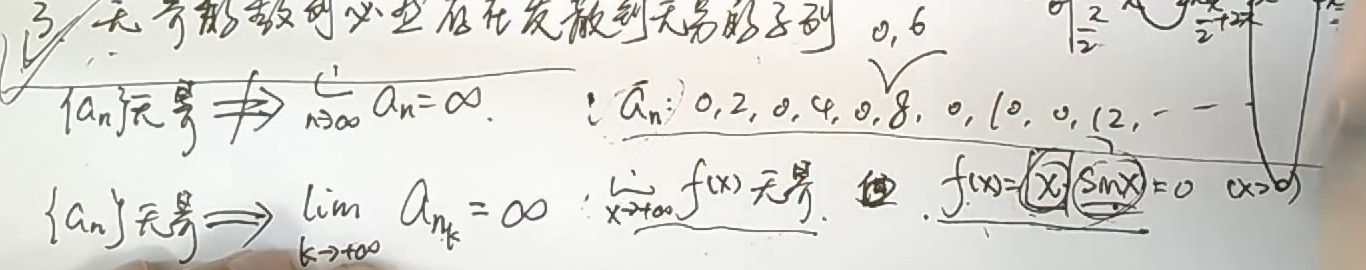 3. 无界的数列必然存在发散到无穷的子列
0, 6
{aₙ}无界 ⇏ lim n→∞ aₙ=∞. : aₙ: 0, 2, 0, 4, 0, 8, 0, 10, 0, 12, - - -
{aₙ}无界 ⟹ lim k→+∞ aₙₖ = ∞ : lim x→+∞ f(x) 无界. 但. f(x)=x sinx = 0 (x>0)